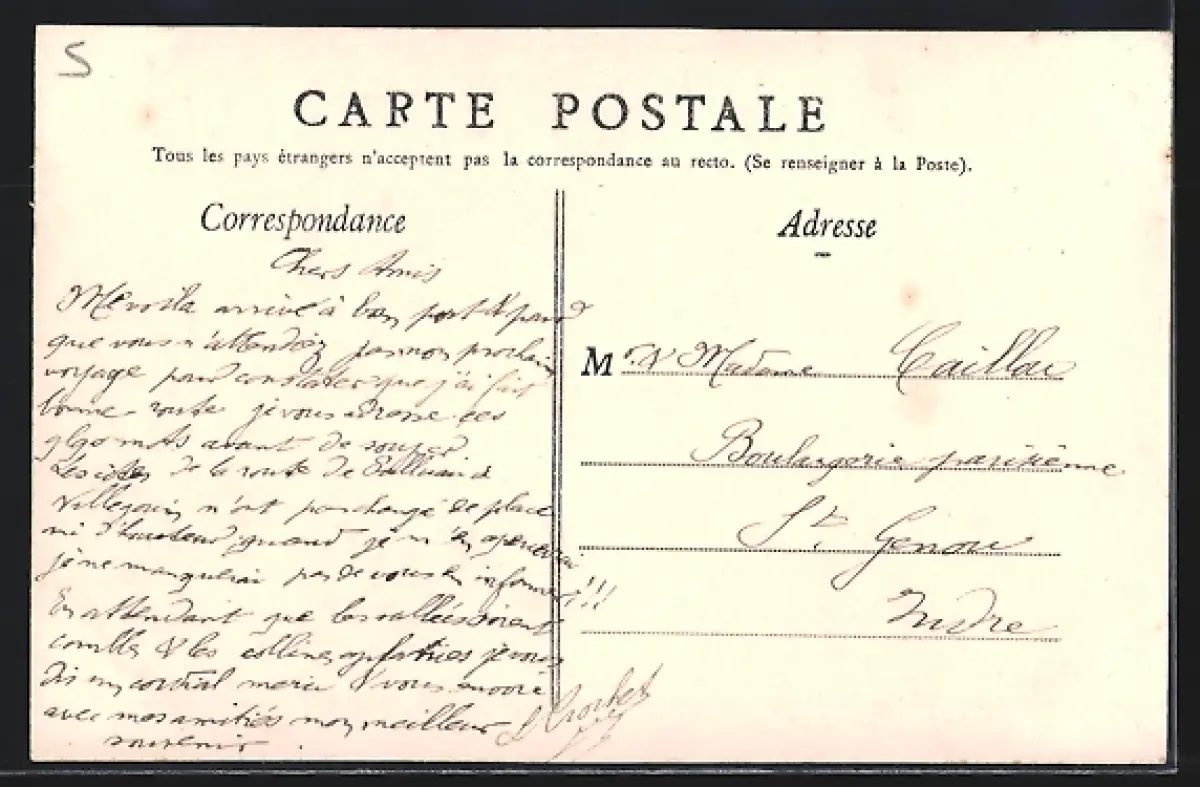 S
CARTE POSTALE
Tous les pays étrangers n'acceptent pas la correspondance au recto. (Se renseigner à la Poste).
Correspondance
Chers Amis
Me voila arrivé à bon port &
que vous n'attendiez pas mon prochain
voyage pour constater que j'ai fait
bonne route je vous adresse ces
qlqs mots avant de souper
Les côtes de la route de
Villegouin n'ont pas changé de place
ni d'hauteur quand je m'en apercevrai
je ne manquerai pas de vous en informer !!!
En attendant que les vallées soient
comblées & les collines aplaties je vous
dis un cordial merci & vous envoie
avec mes amitiés mon meilleur
souvenir.
Adresse
Mr & Madame Caillau
Boulangerie parisienne
St. Genou
Indre